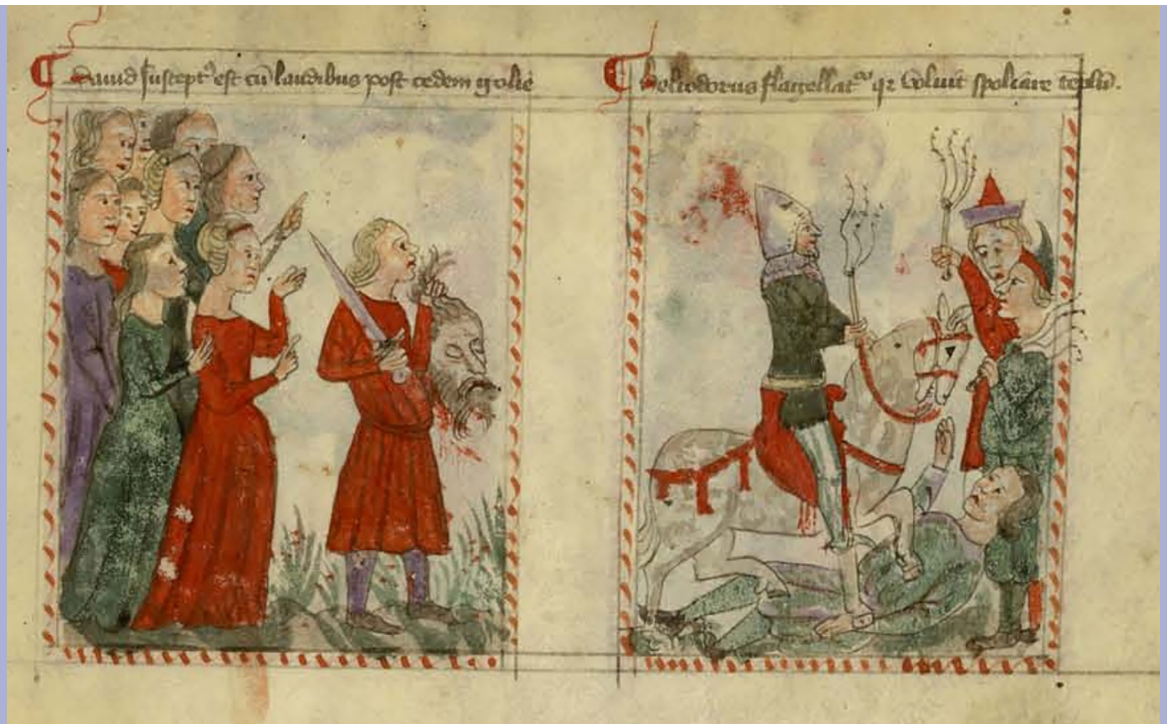 Dauid susceptꝰ est cū laudibus post cedem golie
Heliodorus flagellatꝰ qꝛ voluit spoliare templū.